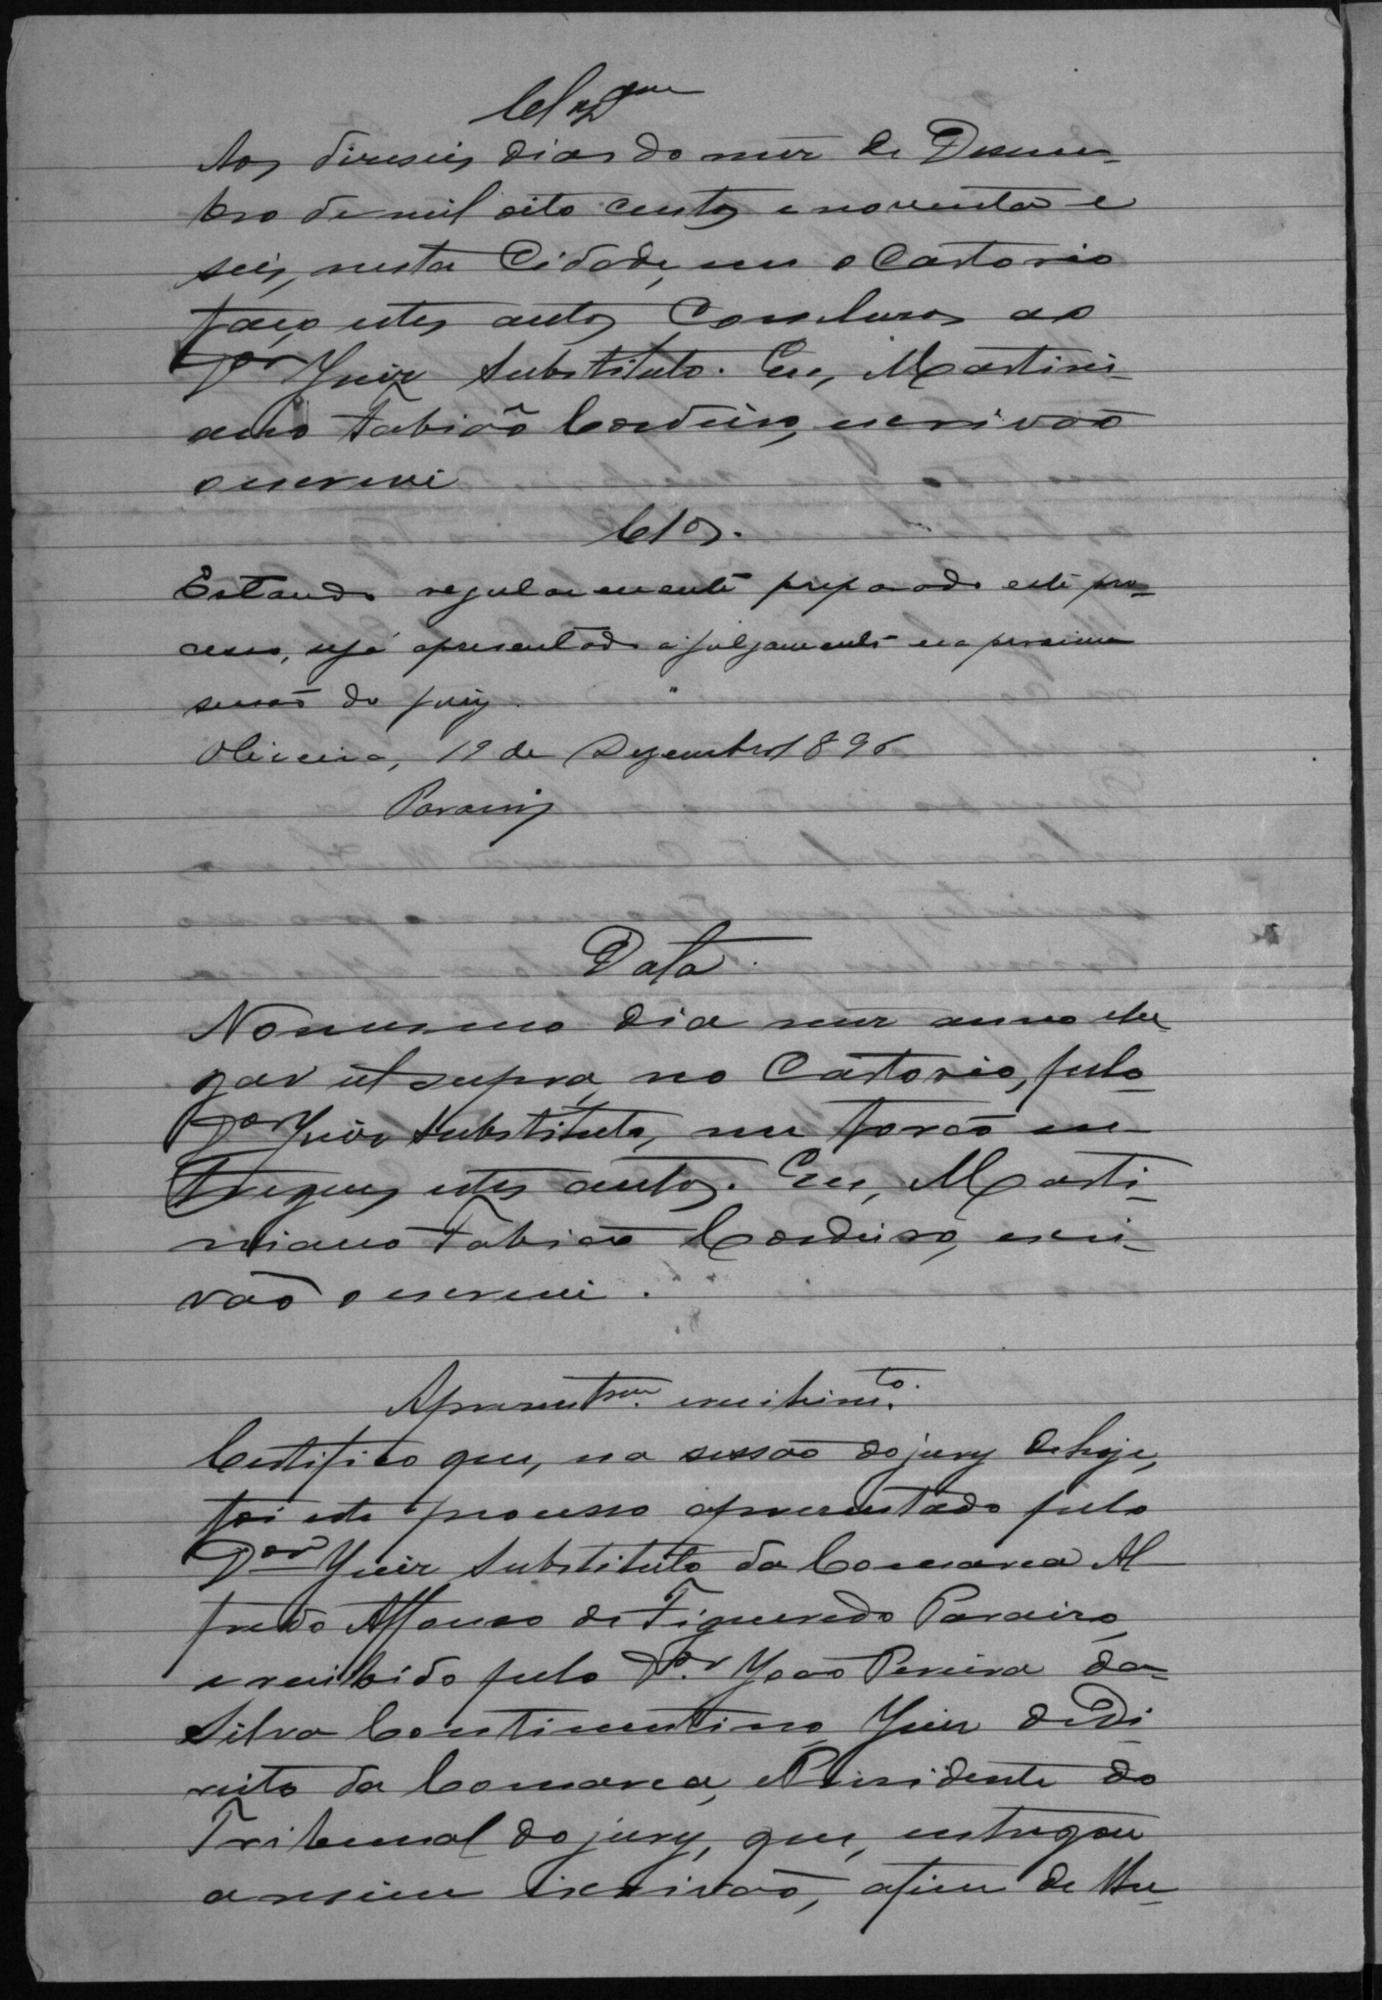 Clzam
Aos direseis dias do mez de Desem-
bro de mil oito centos e noventa e
seis, nesta Cidade, em o Cartorio
faço estes autos Conclusos ao
Dor Juiz Substituto. Eu, Martini-
ano Fabião Cordeiro, escrivão
o escrevi
Clos.
Estando regularmente preparado este pro-
cesso, seja apresentado a julgamento na proxima
sessão do jury.
Oliveira, 19 de Dezembro 1896
Paraiso
Data.
No mesmo dia mez anno e lu-
gar ut supra, no Cartorio, pelo
Dor Juiz Substituto, me forão en-
tregues estes autos. Eu, Marti-
niano Fabião Cordeiro, escri-
vão o escrevi.
Apresentam. e recebimto.
Certifico que, na sessão do jury de hoje,
foi este processo apresentado pelo
Dor Juiz Substituto da Comarca Al-
fredo Affonso de Figueredo Paraiso,
e recebido pelo Dor João Pereira da
Silva Continentino, Juiz de Di-
reito da Comarca, e Presidente do
Tribunal do jury, que, entregou
a mim escrivão, afim de lhe